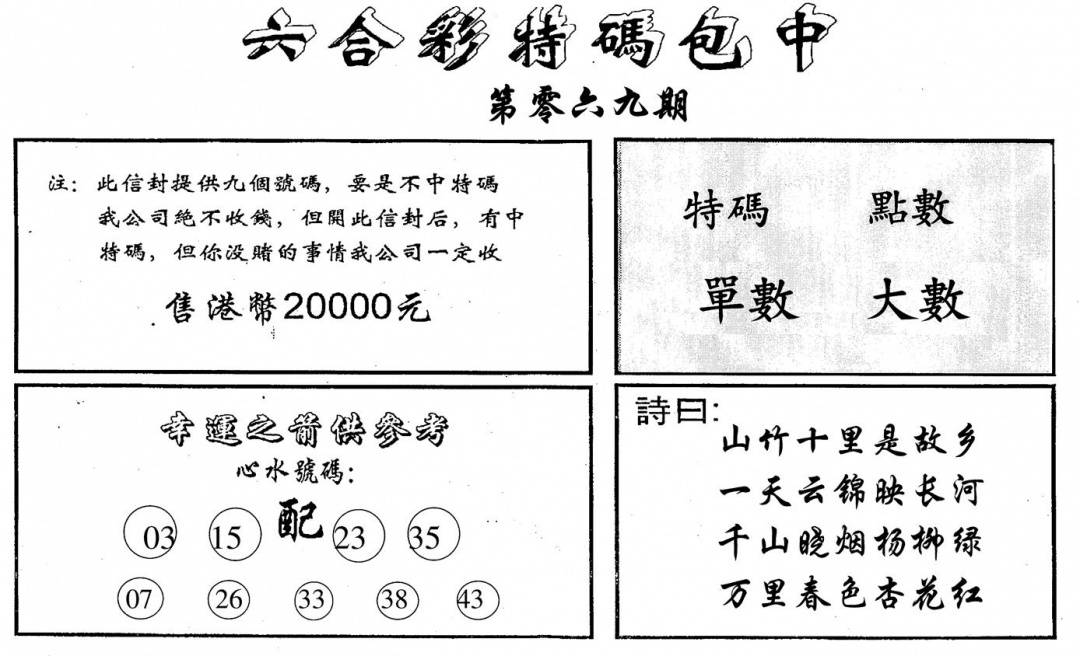 六合彩特碼包中
第零六九期
注：此信封提供九個號碼，要是不中特碼
我公司絕不收錢，但開此信封后，有中
特碼，但你没賭的事情我公司一定收
售港幣20000元
特碼 點數
單數 大數
幸運之箭供參考
心水號碼：
03 15 配 23 35
07 26 33 38 43
詩曰：
山竹十里是故乡
一天云锦映长河
千山晓烟杨柳绿
万里春色杏花红